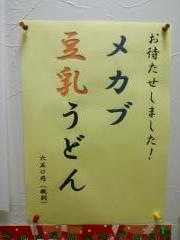 お待たせしました!
メカブ
豆乳うどん
六五〇円(税別)